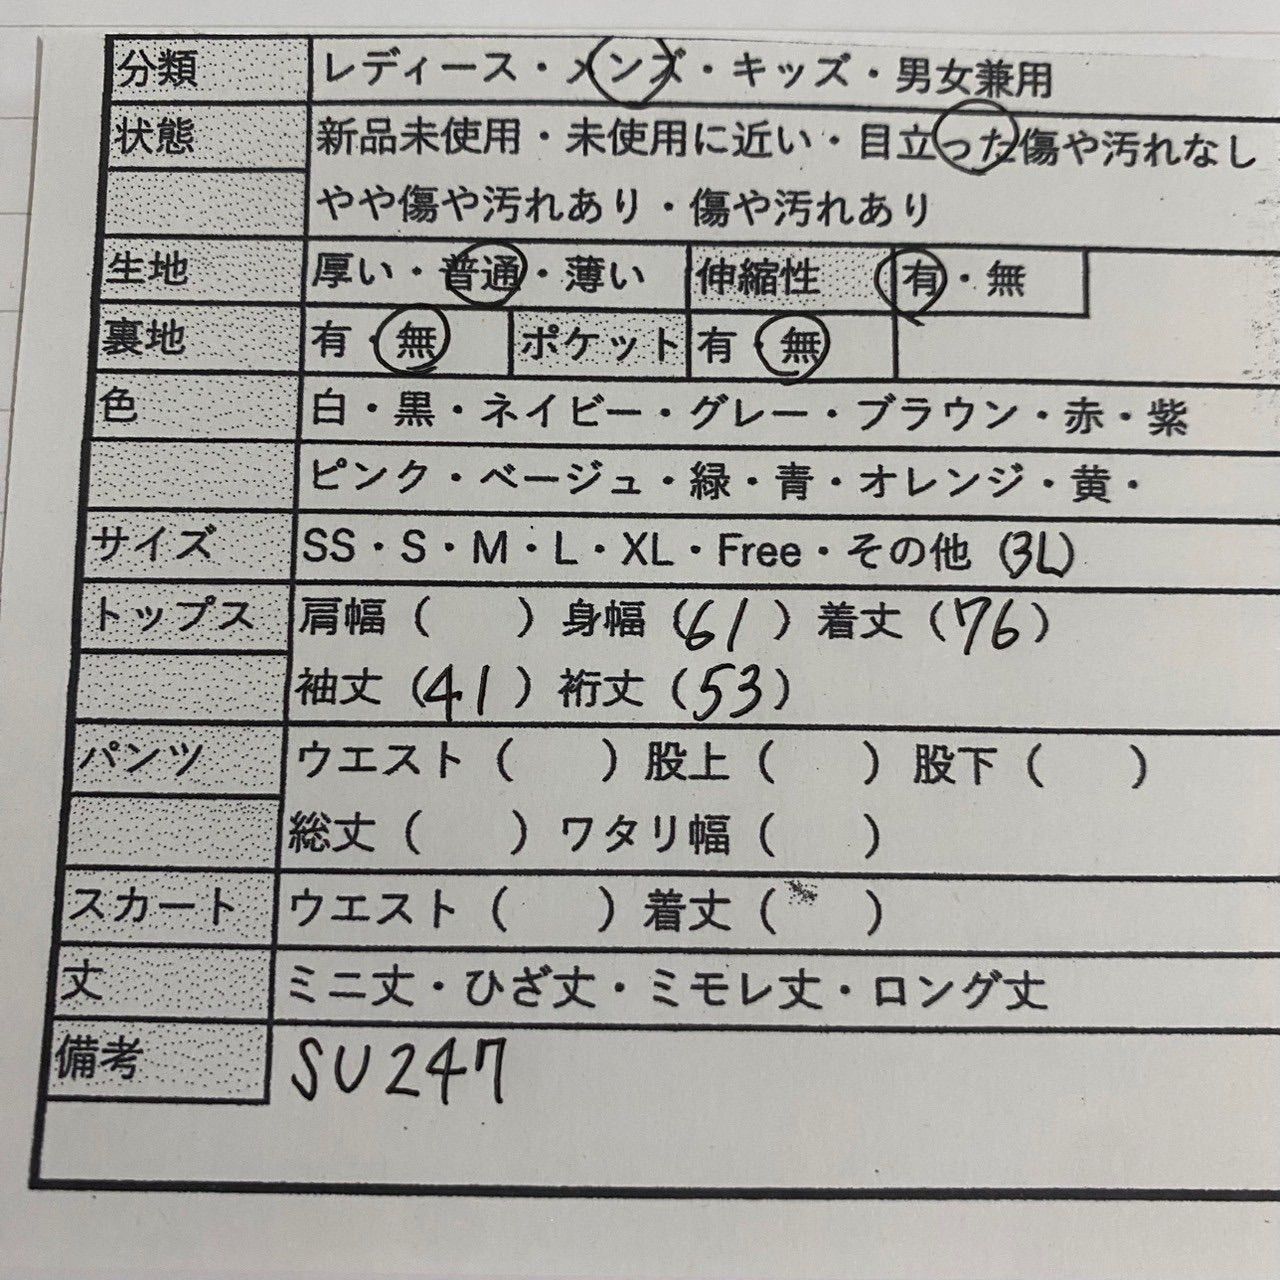 分類 レディース・メンズ・キッズ・男女兼用
状態 新品未使用・未使用に近い・目立った傷や汚れなし
やや傷や汚れあり・傷や汚れあり
生地 厚い・普通・薄い 伸縮性 有・無
裏地 有・無 ポケット 有・無
色 白・黒・ネイビー・グレー・ブラウン・赤・紫
ピンク・ベージュ・緑・青・オレンジ・黄・
サイズ SS・S・M・L・XL・Free・その他(3L)
トップス 肩幅( )身幅(61)着丈(76)
袖丈(41)裄丈(53)
パンツ ウエスト( )股上( )股下( )
総丈( )ワタリ幅( )
スカート ウエスト( )着丈( )
丈 ミニ丈・ひざ丈・ミモレ丈・ロング丈
備考 SU247